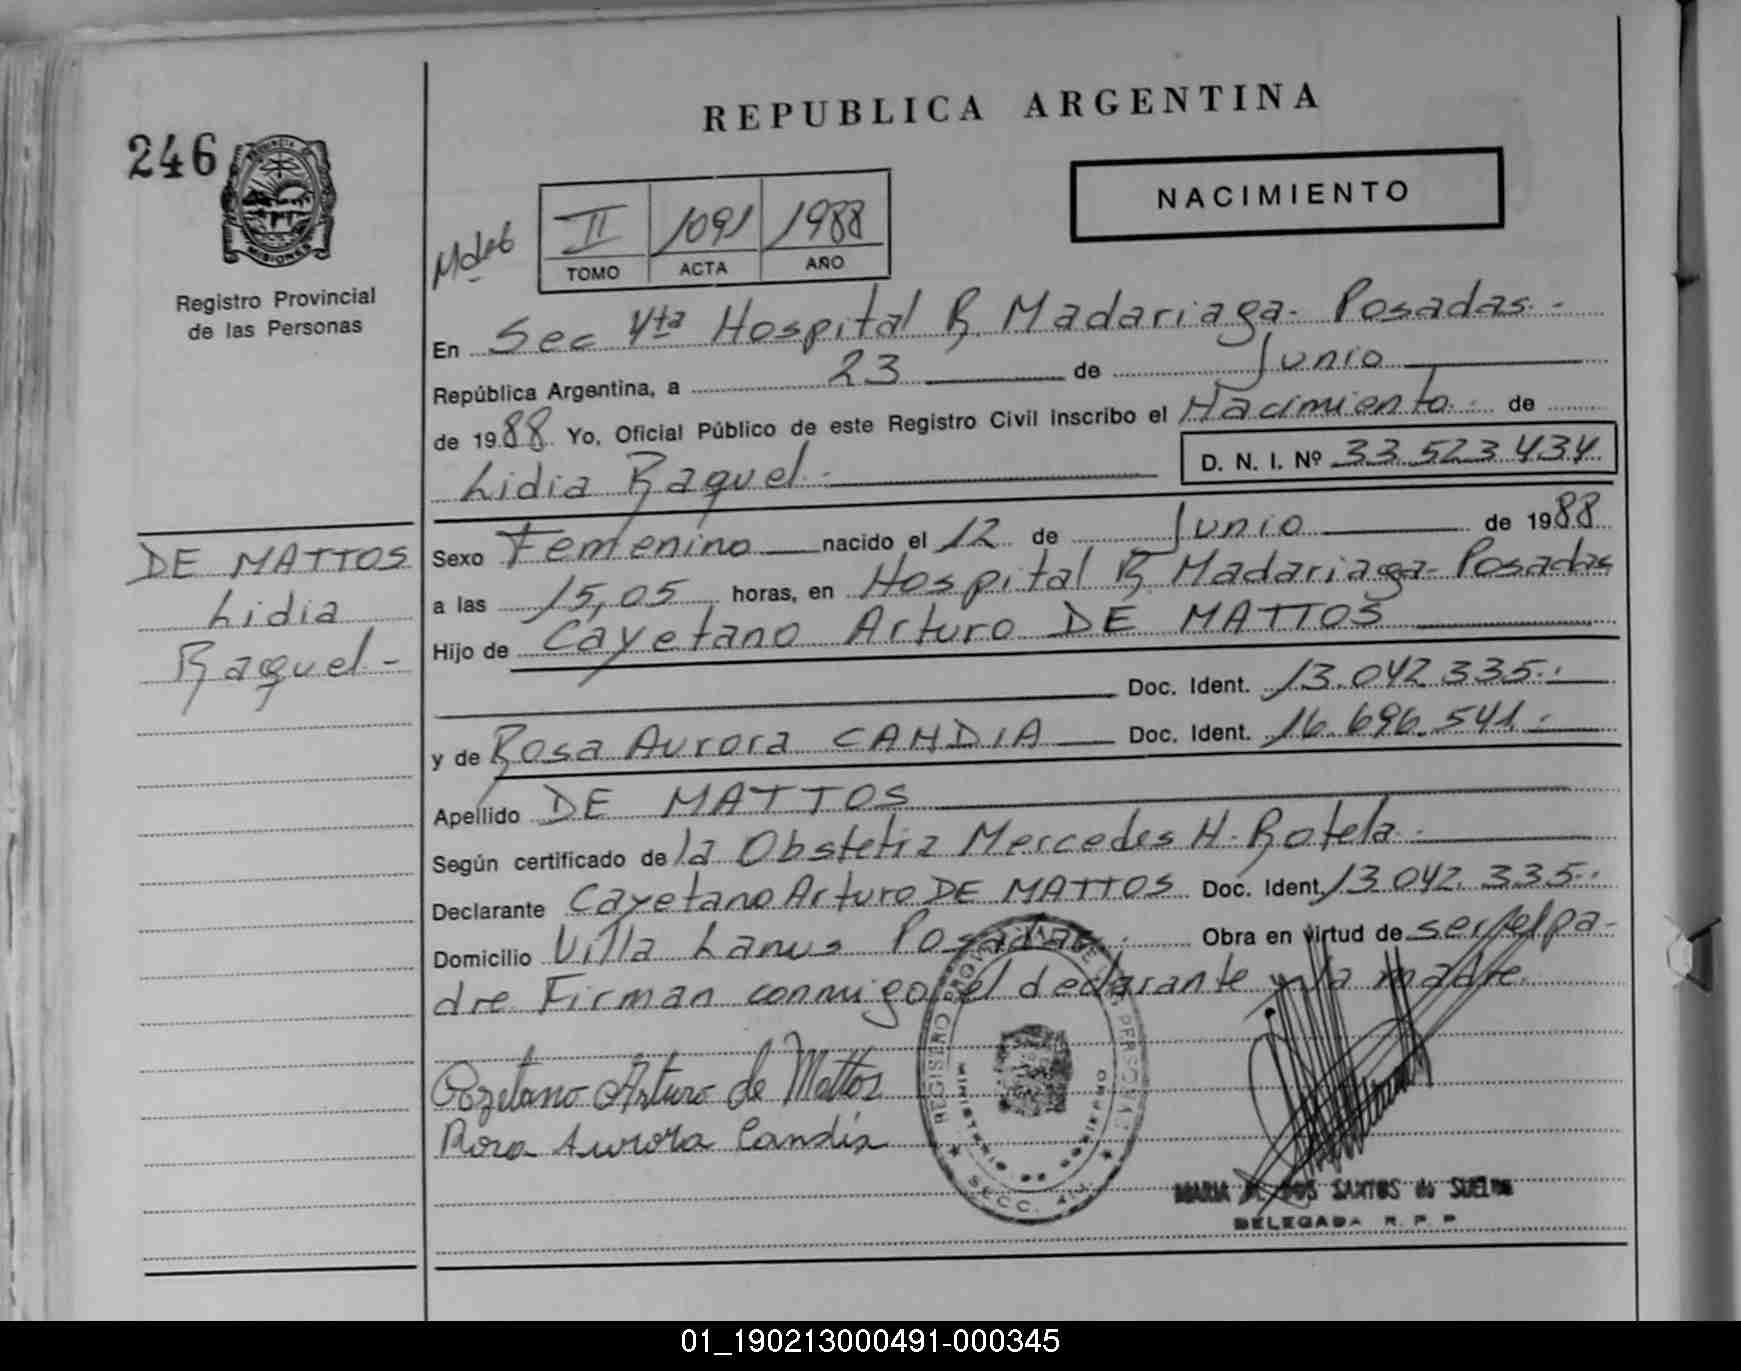 REPUBLICA ARGENTINA
246
PROVINCIA DE
MISIONES
Registro Provincial
de las Personas
NACIMIENTO
II 1091 1988
TOMO ACTA AÑO
En Sec 4ta Hospital R. Madariaga - Posadas.-
República Argentina, a 23 de Junio
de 1988 Yo, Oficial Público de este Registro Civil inscribo el Nacimiento.- de
Lidia Raquel.-
D. N. I. Nº 33.523.434
DE MATTOS
Lidia
Raquel-
Sexo Femenino nacido el 12 de Junio de 1988
a las 15,05 horas, en Hospital R. Madariaga- Posadas
Hijo de Cayetano Arturo DE MATTOS
Doc. Ident. 13.042.335.-
y de Rosa Aurora CANDIA Doc. Ident. 16.696.541.-
Apellido DE MATTOS
Según certificado de la Obstetriz Mercedes H. Rotela.-
Declarante Cayetano Arturo DE MATTOS Doc. Ident. 13.042.335.-
Domicilio Villa Lanus Posadas.- Obra en virtud de ser el pa-
dre. Firman conmigo el declarante y la madre.
Cayetano Arturo de Mattos
Rosa Aurora Candia
REGISTRO PROVINCIAL DE LAS PERSONAS
MINISTERIO DE GOBIERNO
SECC. 4ta
MARIA DOS SANTOS de SUELDO
DELEGADA R. P. P.
01_190213000491-000345